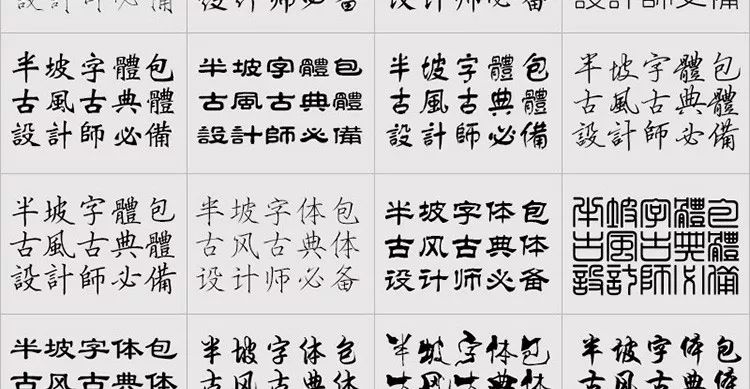 半坡字體包
古風古典體
設計師必備
半坡字體包
古風古典體
設計師必備
半坡字體包
古風古典體
設計師必備
半坡字體包
古風古典體
設計師必備
半坡字體包
古風古典體
設計師必備
半坡字体包
古风古典体
设计师必备
半坡字体包
古风古典体
设计师必备
半坡字體包
古風古典體
設計師必備
半坡字体包
古风古典体
半坡字体包
古风古典体
半坡字体包
古风古典体
半坡字体包
古风古典体